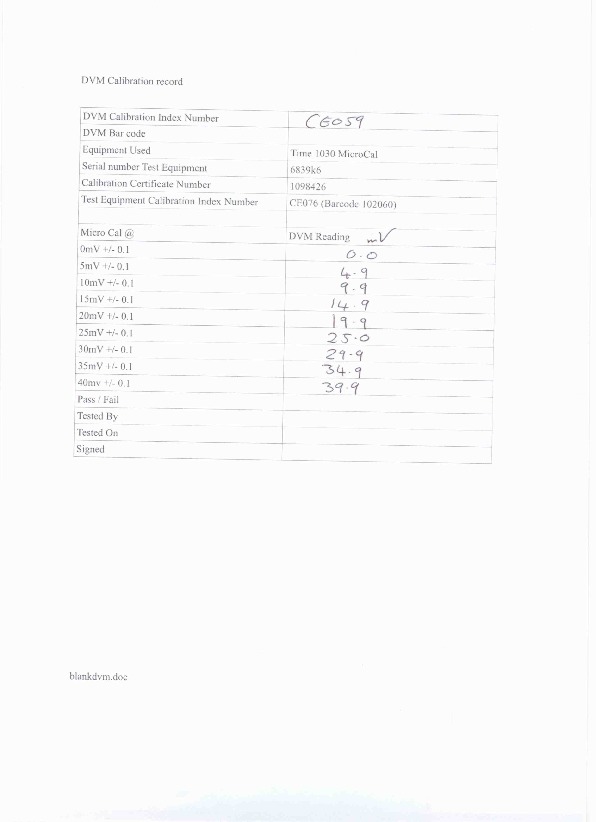 DVM Calibration record
DVM Calibration Index Number CE059
DVM Bar code
Equipment Used Time 1030 MicroCal
Serial number Test Equipment 6839k6
Calibration Certificate Number 1098426
Test Equipment Calibration Index Number CE076 (Barcode 102060)
Micro Cal @ DVM Reading mV
0mV +/- 0.1 0.0
5mV +/- 0.1 4.9
10mV +/- 0.1 9.9
15mV +/- 0.1 14.9
20mV +/- 0.1 19.9
25mV +/- 0.1 25.0
30mV +/- 0.1 29.9
35mV +/- 0.1 34.9
40mv +/- 0.1 39.9
Pass / Fail
Tested By
Tested On
Signed
blankdvm.doc